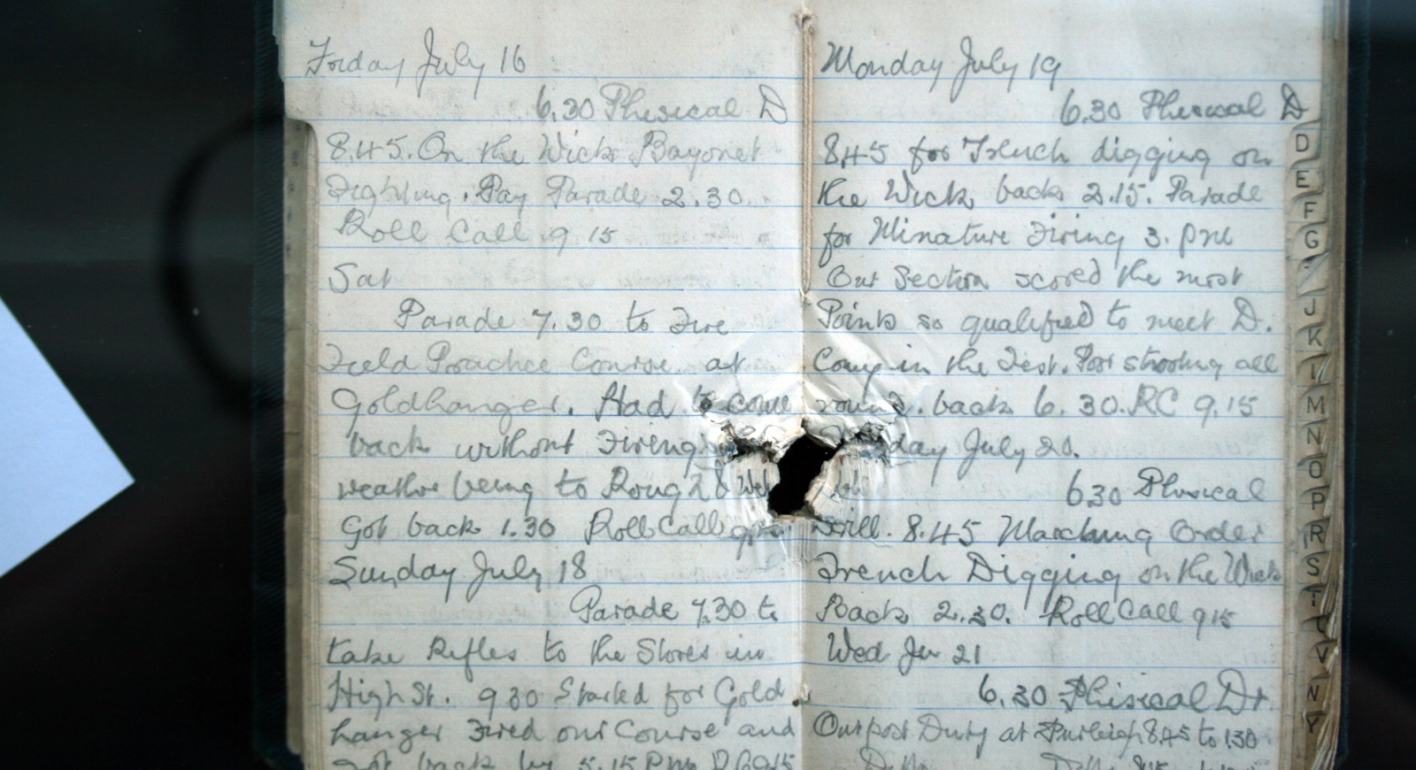 Friday July 16
6.30 Phesical D
8.45. On the Wick Bayonet
Fighting. Pay Parade 2.30
Roll Call 9 15
Sat
Parade 7.30 to Fire
Field Practice Course at
Goldhanger. Had to come
back without Firing
weather being to Rough
Got back 1.30 Roll Call
Sunday July 18
Parade 7.30 to
take Rifles to the Stores in
High St. 9 30 Started for Gold
hanger Fired our Course and
got back by 5.15 PM
Monday July 19
6.30 Phesical D
8.45 for Trench digging on
the Wick back 2.15. Parade
for Minature Firing 3. pm
Our Section scored the most
Points so qualified to meet D.
Comy in the Test. For shooting all
round. back 6.30. RC 9.15
day July 20.
6.30 Phesical
Drill. 8.45 Marching Order
Trench Digging on the Wick
Back 2.30. Roll Call 9 15
Wed 21
6.30 Phisical Dr
Outpost Duty at Purleigh 8.45 to 1.30
D
E
F
G
J
K
M
N
O
P
R
S
T
V